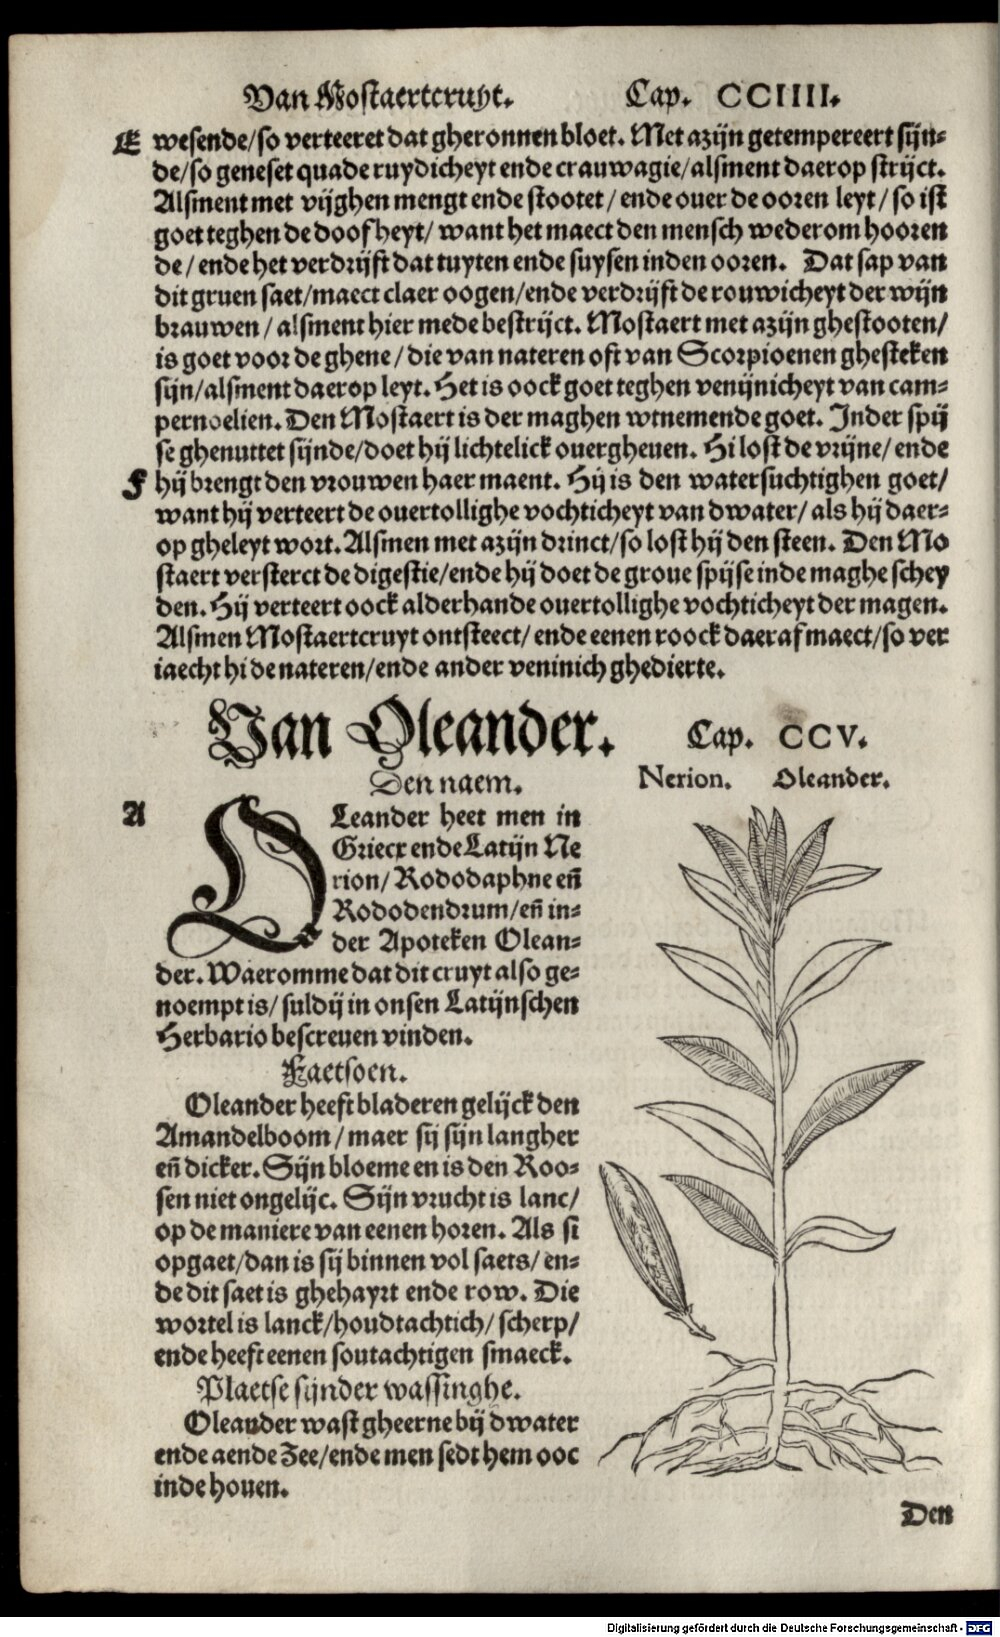 Van Mostaertcruyt. Cap. CCIIII.
E wesende/so verteeret dat gheronnen bloet. Met azijn getempereert sijn=
de/so geneset quade ruydicheyt ende crauwagie/alsment daerop strijct.
Alsment met vijghen mengt ende stootet/ende ouer de ooren leyt/so ist
goet teghen de doofheyt/want het maect den mensch wederom hooren
de/ende het verdrijft dat tuyten ende suysen inden ooren. Dat sap van
dit gruen saet/maect claer oogen/ende verdrijft de rouwicheyt der wijn
brauwen/alsment hier mede bestrijct. Mostaert met azijn ghestooten/
is goet voor de ghene/die van nateren oft van Scorpioenen ghesteken
sijn/alsment daerop leyt. Het is oock goet teghen venijnicheyt van cam=
pernoelien. Den Mostaert is der maghen wtnemende goet. Inder spij
se ghenuttet sijnde/doet hij lichtelick ouergheuen. Hi lost de vrijne/ende
F hij brengt den vrouwen haer maent. Hij is den watersuchtighen goet/
want hij verteert de ouertollighe vochticheyt van dwater/als hij daer=
op gheleyt wort. Alsmen met azijn drinct/so lost hij den steen. Den Mo
staert versterct de digestie/ende hij doet de groue spijse inde maghe schey
den. Hij verteert oock alderhande ouertollighe vochticheyt der magen.
Alsmen Mostaertcruyt ontsteect/ende eenen roock daeraf maect/so ver
iaecht hi de nateren/ende ander veninich ghedierte.
Van Oleander. Cap. CCV.
Den naem. Nerion. Oleander.
A OLeander heet men in
Griecx ende Latijn Ne
rion/Rododaphne eñ
Rododendrum/eñ in=
der Apoteken Olean=
der. Waeromme dat dit cruyt also ge=
noempt is/suldij in onsen Latijnschen
Herbario bescreuen vinden.
Faetsoen.
Oleander heeft bladeren gelijck den
Amandelboom/maer sij sijn langher
eñ dicker. Sijn bloeme en is den Roo=
sen niet ongelijc. Sijn vrucht is lanc/
op de maniere van eenen horen. Als si
opgaet/dan is sij binnen vol saets/en=
de dit saet is ghehayrt ende row. Die
wortel is lanck/houdtachtich/scherp/
ende heeft eenen soutachtigen smaeck.
Plaetse sijnder wassinghe.
Oleander wast gheerne bij dwater
ende aende Zee/ende men sedt hem ooc
inde houen.
Den
Digitalisierung gefördert durch die Deutsche Forschungsgemeinschaft - DFG